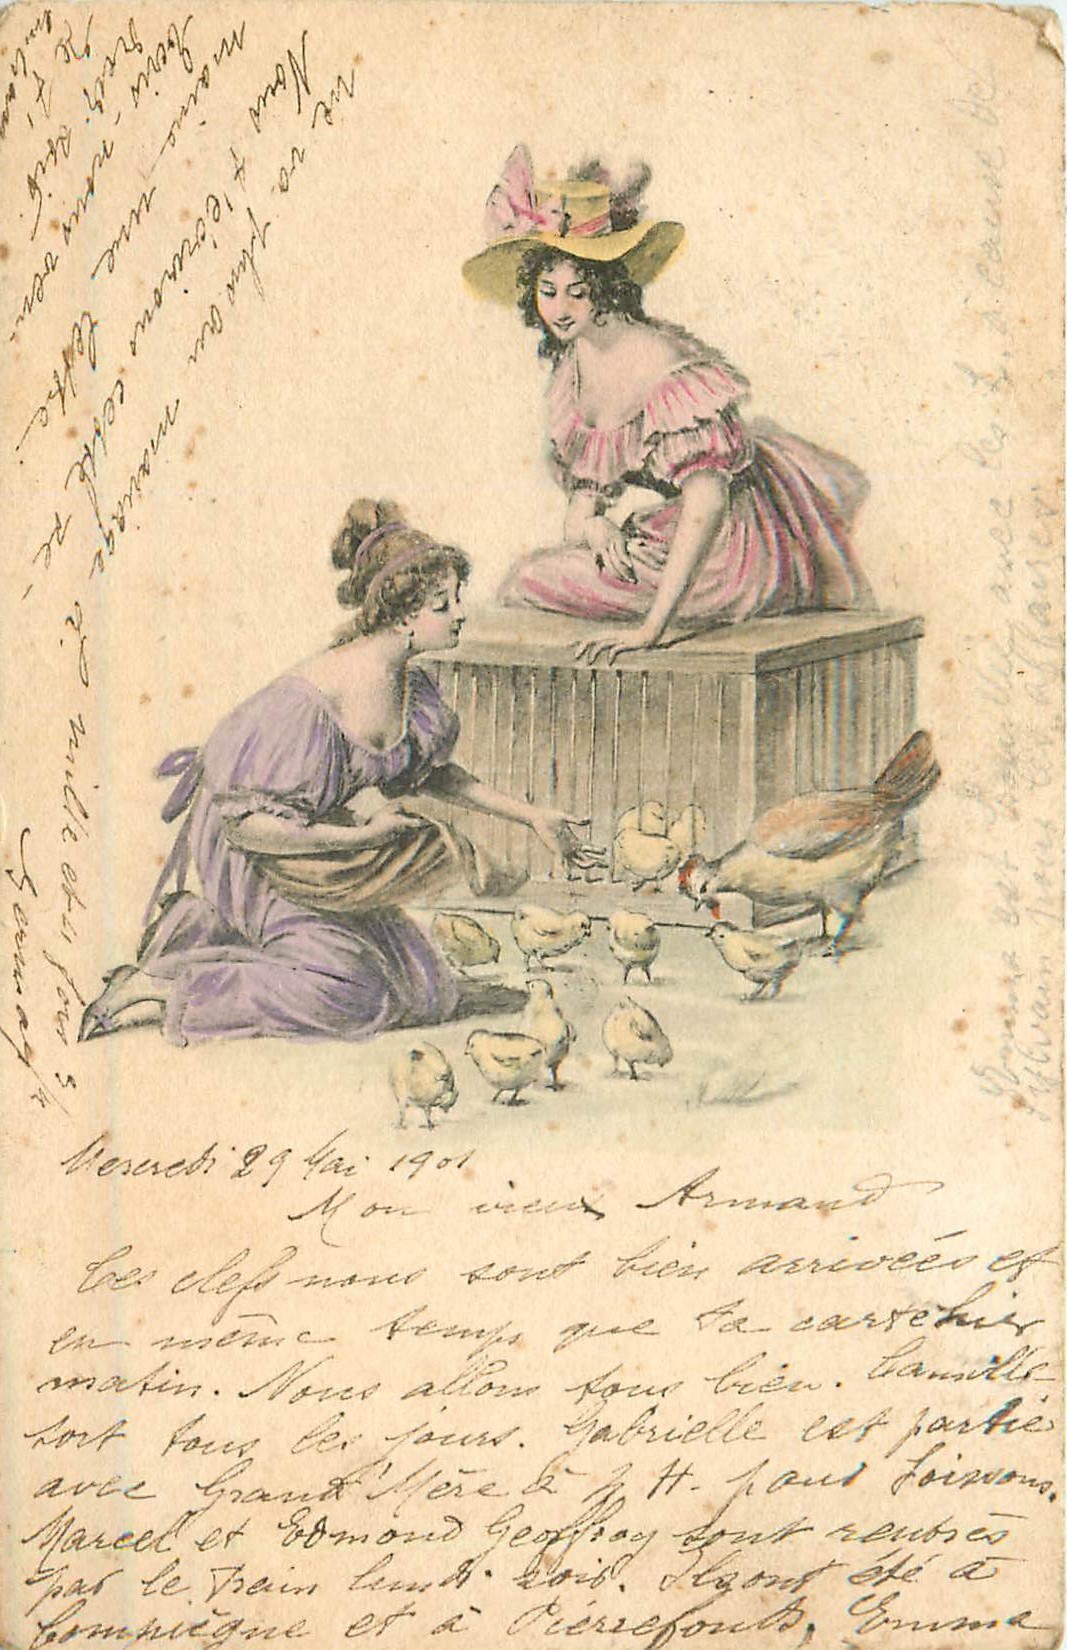 Mercredi 29 Mai 1901
Mon vieux Armand
Les clefs nous sont bien arrivées et
en même temps que ta carte hier
matin. Nous allons tous bien. Camille
sort tous les jours. Gabrielle est partie
avec Grand'Mère à 7 H. pour Soissons.
Marcel et Edmond Geoffroy sont rentrés
par le train lundi soir. Ils ont été à
Compiègne et à Pierrefonds. Emma
Emma est brouillée avec les L. à cause de
Sylvain pour les affaires
ne va plus au mariage
Nous t'écrirons cette se-
maine une lettre.